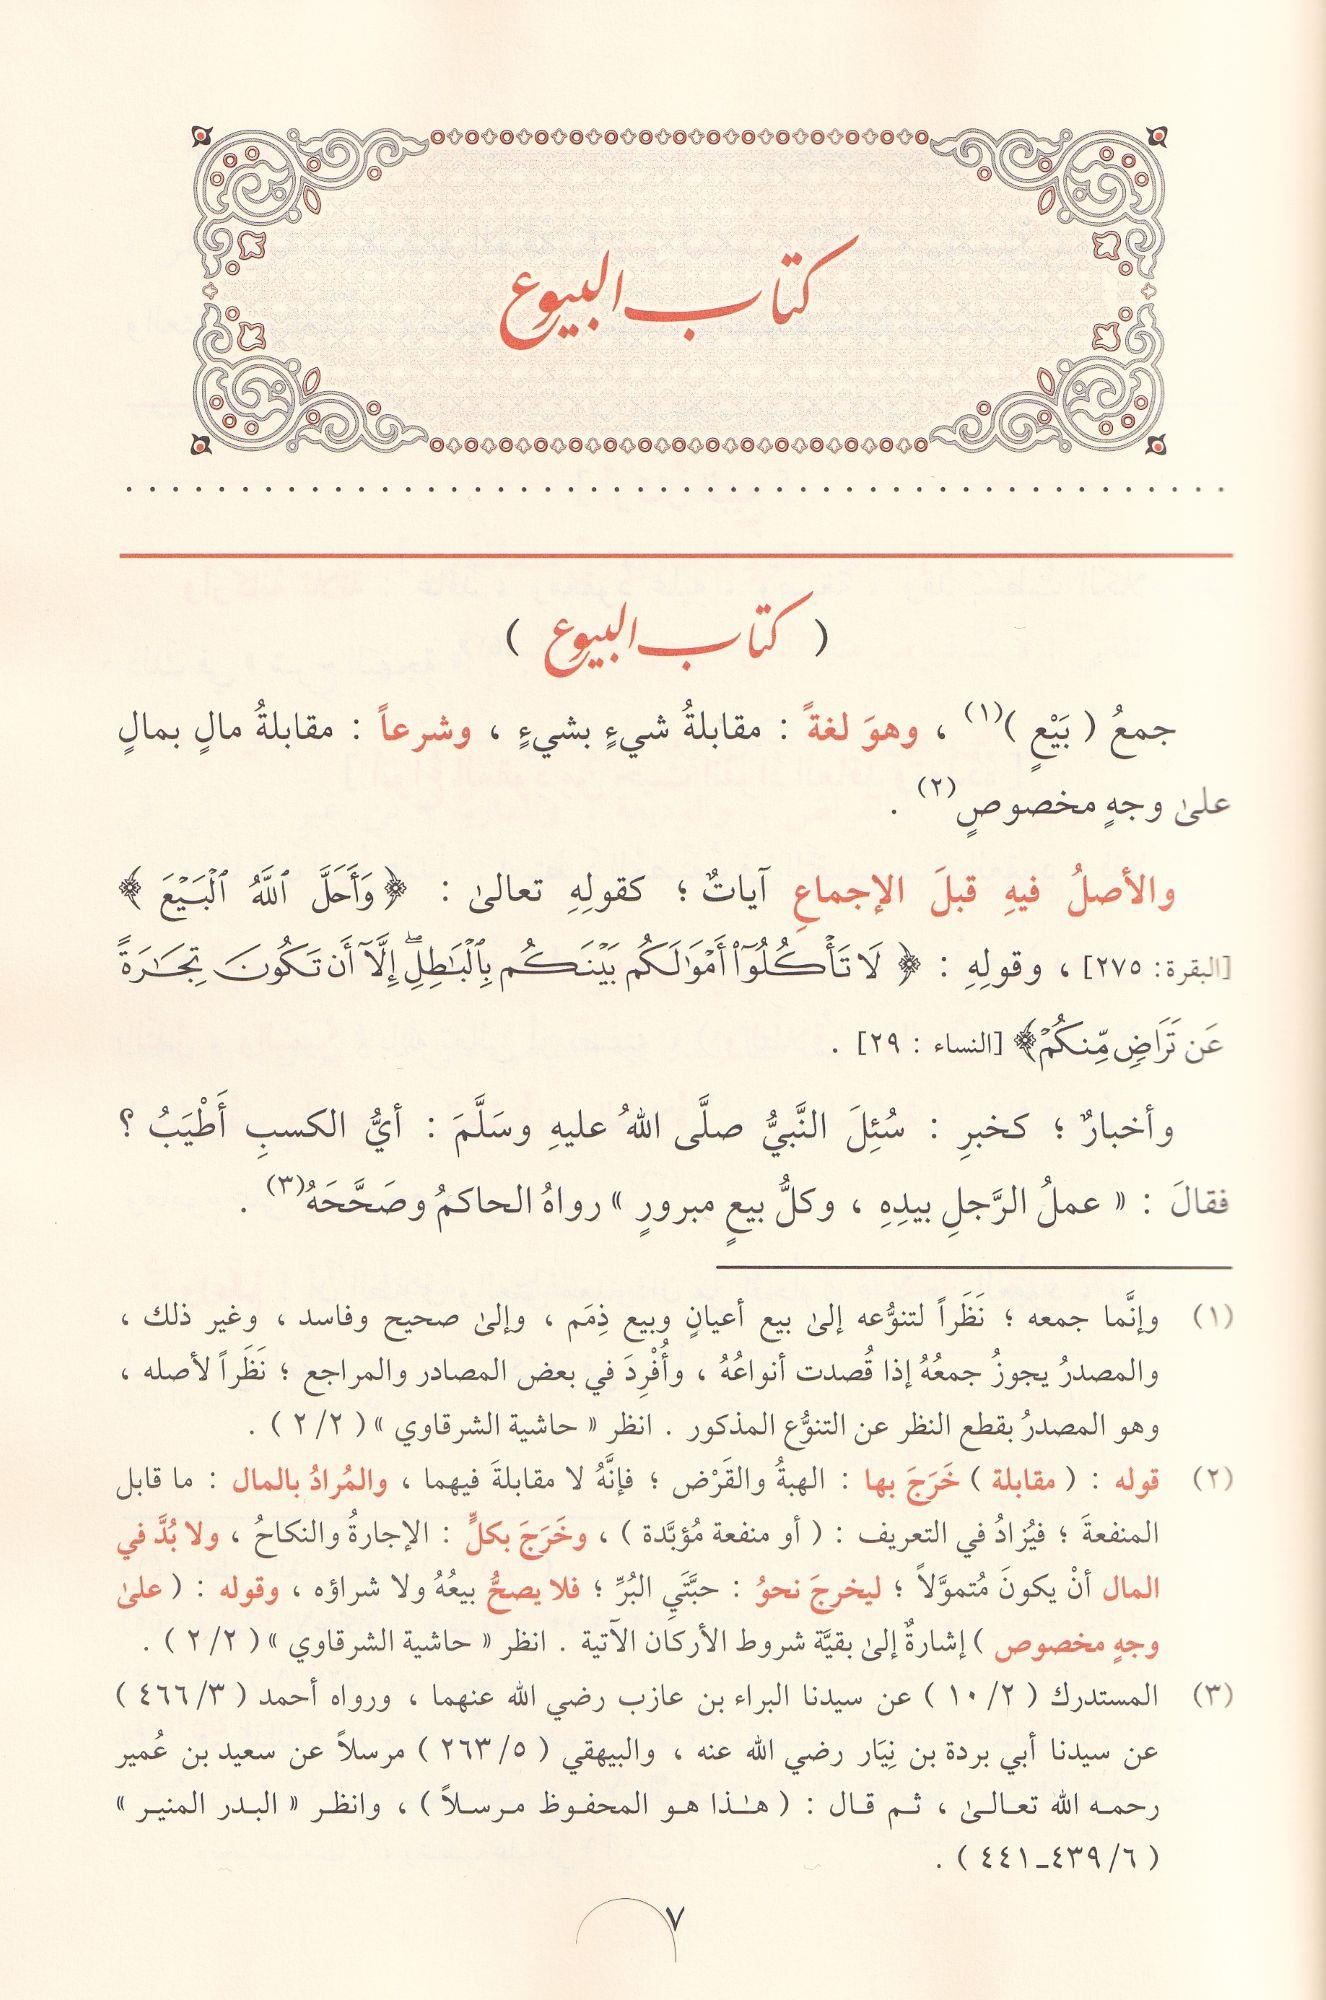 كتاب البيوع
( كتاب البيوع )
جمعُ ( بَيْعٍ )(١) ، وهوَ لغةً : مقابلةُ شيءٍ بشيءٍ ، وشرعاً : مقابلةُ مالٍ بمالٍ
علىٰ وجهٍ مخصوصٍ(٢) .
والأصلُ فيهِ قبلَ الإجماعِ آياتٌ ؛ كقولِهِ تعالىٰ : ﴿ وَأَحَلَّ ٱللَّهُ ٱلْبَيْعَ ﴾
[البقرة: ٢٧٥] ، وقولِهِ : ﴿ لَا تَأْكُلُوٓا۟ أَمْوَٰلَكُم بَيْنَكُم بِٱلْبَٰطِلِ إِلَّآ أَن تَكُونَ تِجَٰرَةً
عَن تَرَاضٍ مِّنكُمْ﴾ [النساء : ٢٩] .
وأخبارٌ ؛ كخبرِ : سُئِلَ النَّبيُّ صلَّى اللهُ عليهِ وسَلَّمَ : أيُّ الكسبِ أَطْيَبُ ؟
فقالَ : « عملُ الرَّجلِ بيدِهِ ، وكلُّ بيعٍ مبرورٍ » رواهُ الحاكمُ وصَحَّحَهُ(٣) .
(١) وإنَّما جمعه ؛ نَظَراً لتنوُّعه إلىٰ بيع أعيانٍ وبيع ذِمَم ، وإلىٰ صحيح وفاسد ، وغير ذلك ،
والمصدرُ يجوزُ جمعُهُ إذا قُصدت أنواعُهُ ، وأُفْرِدَ في بعض المصادر والمراجع ؛ نَظَراً لأصله ،
وهو المصدرُ بقطع النظر عن التنوُّع المذكور . انظر « حاشية الشرقاوي » ( ٢/٢ ) .
(٢) قوله : ( مقابلة ) خَرَجَ بها : الهبةُ والقَرْض ؛ فإنَّهُ لا مقابلةَ فيهما ، والمُرادُ بالمال : ما قابل
المنفعةَ ؛ فيُزادُ في التعريف : ( أو منفعة مُؤبَّدة ) ، وخَرَجَ بكلٍّ : الإجارةُ والنكاحُ ، ولا بُدَّ في
المال أنْ يكونَ مُتموَّلاً ؛ ليخرجَ نحوُ : حبَّتَيِ البُرِّ ؛ فلا يصحُّ بيعُهُ ولا شراؤه ، وقوله : ( علىٰ
وجهٍ مخصوص ) إشارةٌ إلىٰ بقيَّة شروط الأركان الآتية . انظر « حاشية الشرقاوي » ( ٢/٢ ) .
(٣) المستدرك ( ١٠/٢ ) عن سيدنا البراء بن عازب رضي الله عنهما ، ورواه أحمد ( ٤٦٦/٣ )
عن سيدنا أبي بردة بن نِيَار رضي الله عنه ، والبيهقي ( ٢٦٣/٥ ) مرسلاً عن سعيد بن عُمير
رحمه الله تعالىٰ ، ثم قال : ( هٰذا هو المحفوظ مرسلاً ) ، وانظر « البدر المنير »
( ٤٣٩/٦ـ٤٤١ ) .
٧